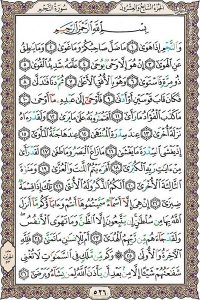 الجزء السابع والعشرون
سورة النجم
بِسْمِ اللَّهِ الرَّحْمَٰنِ الرَّحِيمِ
وَالنَّجْمِ إِذَا هَوَىٰ ١ مَا ضَلَّ صَاحِبُكُمْ وَمَا غَوَىٰ ٢ وَمَا يَنطِقُ
عَنِ الْهَوَىٰ ٣ إِنْ هُوَ إِلَّا وَحْيٌ يُوحَىٰ ٤ عَلَّمَهُ شَدِيدُ الْقُوَىٰ ٥
ذُو مِرَّةٍ فَاسْتَوَىٰ ٦ وَهُوَ بِالْأُفُقِ الْأَعْلَىٰ ٧ ثُمَّ دَنَا فَتَدَلَّىٰ ٨
فَكَانَ قَابَ قَوْسَيْنِ أَوْ أَدْنَىٰ ٩ فَأَوْحَىٰ إِلَىٰ عَبْدِهِ مَا أَوْحَىٰ ١٠
مَا كَذَبَ الْفُؤَادُ مَا رَأَىٰ ١١ أَفَتُمَارُونَهُ عَلَىٰ مَا يَرَىٰ ١٢ وَلَقَدْ رَآهُ
نَزْلَةً أُخْرَىٰ ١٣ عِندَ سِدْرَةِ الْمُنتَهَىٰ ١٤ عِندَهَا جَنَّةُ الْمَأْوَىٰ ١٥
إِذْ يَغْشَى السِّدْرَةَ مَا يَغْشَىٰ ١٦ مَا زَاغَ الْبَصَرُ وَمَا طَغَىٰ ١٧ لَقَدْ رَأَىٰ
مِنْ آيَاتِ رَبِّهِ الْكُبْرَىٰ ١٨ أَفَرَأَيْتُمُ اللَّاتَ وَالْعُزَّىٰ ١٩ وَمَنَاةَ
الثَّالِثَةَ الْأُخْرَىٰ ٢٠ أَلَكُمُ الذَّكَرُ وَلَهُ الْأُنثَىٰ ٢١ تِلْكَ إِذًا قِسْمَةٌ
ضِيزَىٰ ٢٢ إِنْ هِيَ إِلَّا أَسْمَاءٌ سَمَّيْتُمُوهَا أَنتُمْ وَآبَاؤُكُم مَّا أَنزَلَ
اللَّهُ بِهَا مِن سُلْطَانٍ إِن يَتَّبِعُونَ إِلَّا الظَّنَّ وَمَا تَهْوَى الْأَنفُسُ
وَلَقَدْ جَاءَهُم مِّن رَّبِّهِمُ الْهُدَىٰ ٢٣ أَمْ لِلْإِنسَانِ مَا تَمَنَّىٰ ٢٤ فَلِلَّهِ
الْآخِرَةُ وَالْأُولَىٰ ٢٥ وَكَم مِّن مَّلَكٍ فِي السَّمَاوَاتِ لَا تُغْنِي
شَفَاعَتُهُمْ شَيْئًا إِلَّا مِن بَعْدِ أَن يَأْذَنَ اللَّهُ لِمَن يَشَاءُ وَيَرْضَىٰ ٢٦
٥٢٦